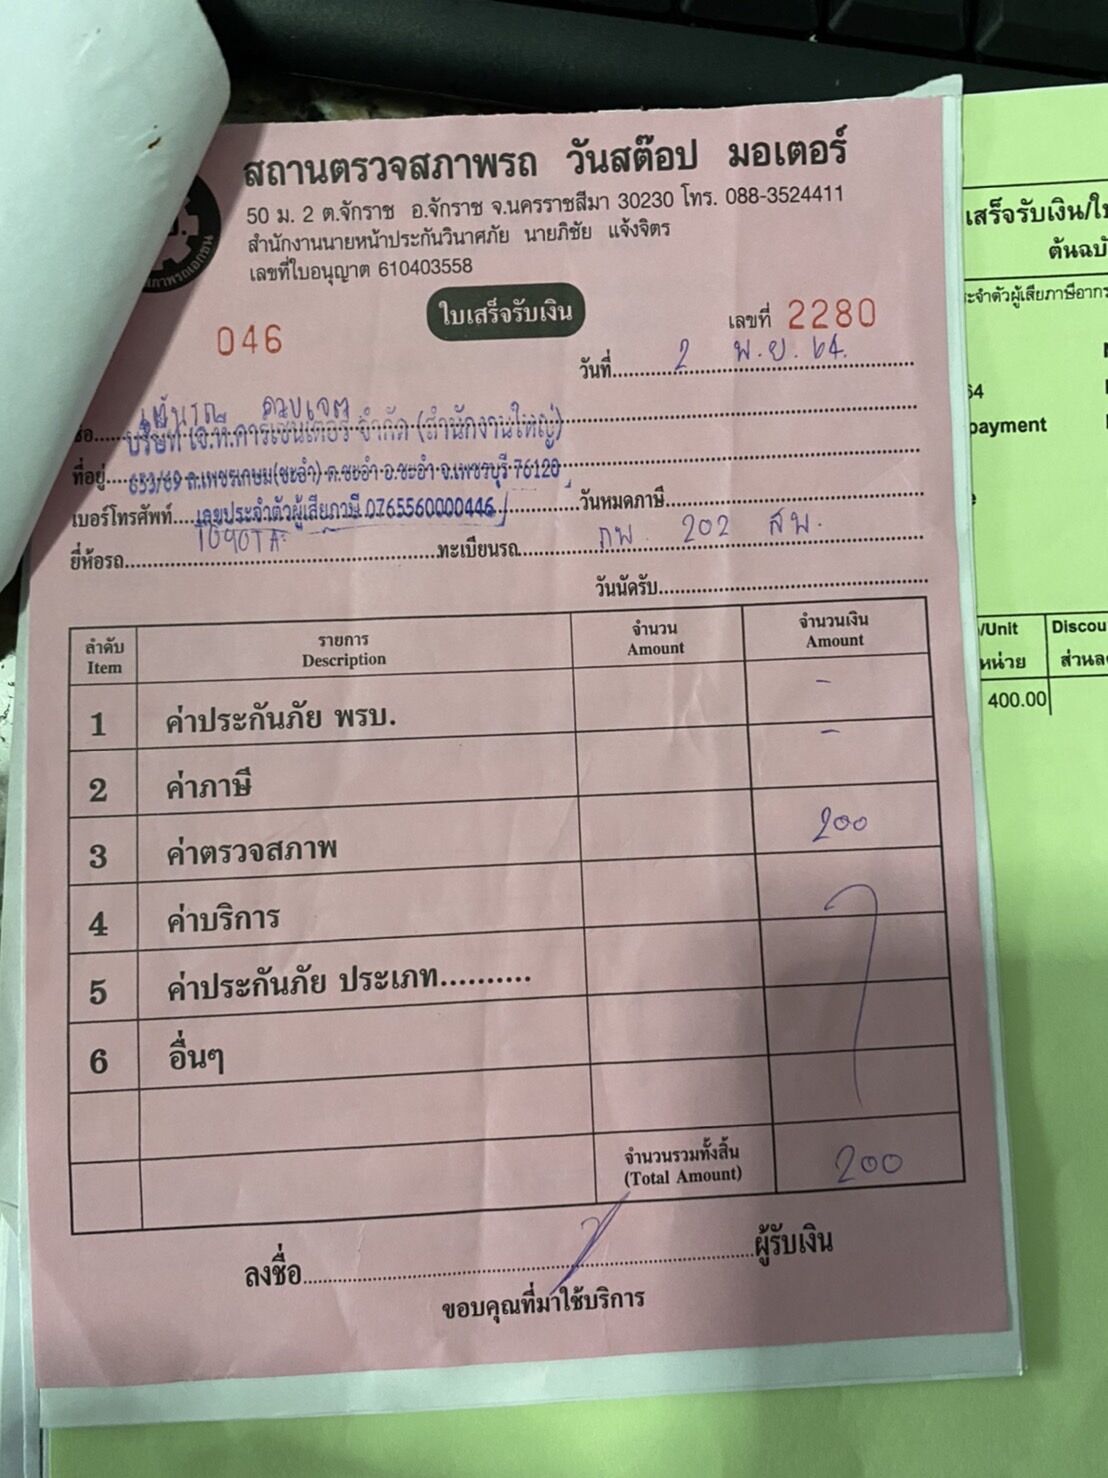 สถานตรวจสภาพรถ วันสต๊อป มอเตอร์
50 ม. 2 ต.จักราช อ.จักราช จ.นครราชสีมา 30230 โทร. 088-3524411
สำนักงานนายหน้าประกันวินาศภัย นายภิชัย แจ้งจิตร
เลขที่ใบอนุญาต 610403558
ใบเสร็จรับเงิน
046
เลขที่ 2280
วันที่ 2 พ.ย. 64.
บริษัท เจ.ที.คาร์เซ็นเตอร์ จำกัด (สำนักงานใหญ่)
ที่อยู่ 653/69 ถ.เพชรเกษม(ชะอำ) ต.ชะอำ อ.ชะอำ จ.เพชรบุรี 76120
เบอร์โทรศัพท์ เลขประจำตัวผู้เสียภาษี 0765560000446 วันหมดภาษี
ยี่ห้อรถ TOYOTA ทะเบียนรถ กพ. 202 สพ.
วันนัดรับ
ลำดับ รายการ จำนวน จำนวนเงิน
Item Description Amount Amount
1 ค่าประกันภัย พรบ. -
2 ค่าภาษี -
3 ค่าตรวจสภาพ 200
4 ค่าบริการ
5 ค่าประกันภัย ประเภท..........
6 อื่นๆ
จำนวนรวมทั้งสิ้น 200
(Total Amount)
ลงชื่อ ผู้รับเงิน
ขอบคุณที่มาใช้บริการ
เสร็จรับเงิน/ใ
ต้นฉบั
ะจำตัวผู้เสียภาษีอากร
64
payment
/Unit Discou
หน่วย ส่วนล
400.00